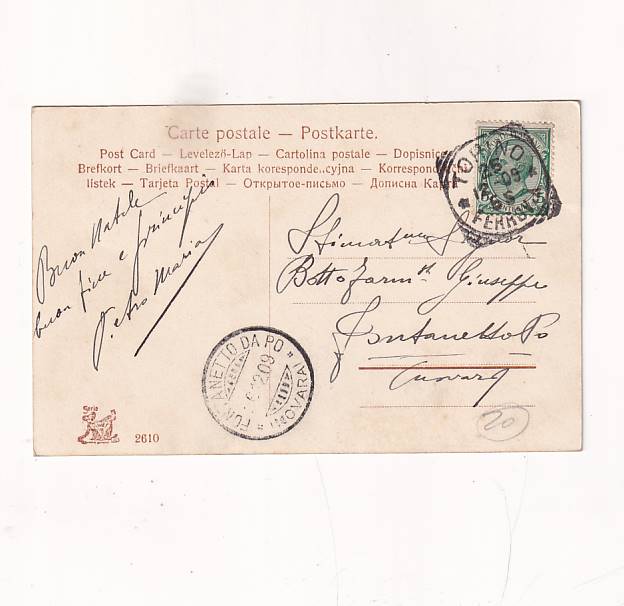 Carte postale — Postkarte.
Post Card — Levelező-Lap — Cartolina postale — Dopisnice
Brefkort — Briefkaart — Karta korespondencyjna — Korrespon
listek — Tarjeta Postal — Открытое-письмо — Дописна Карта
TORINO
FERROVIA
Buon Natale
buon fine e principio
Pietro Maria
Stimat Signor
Botto Farm.ta Giuseppe
Fontanetto Po
Novara
FONTANETTO DA PO
(NOVARA)
Serie
2610
20